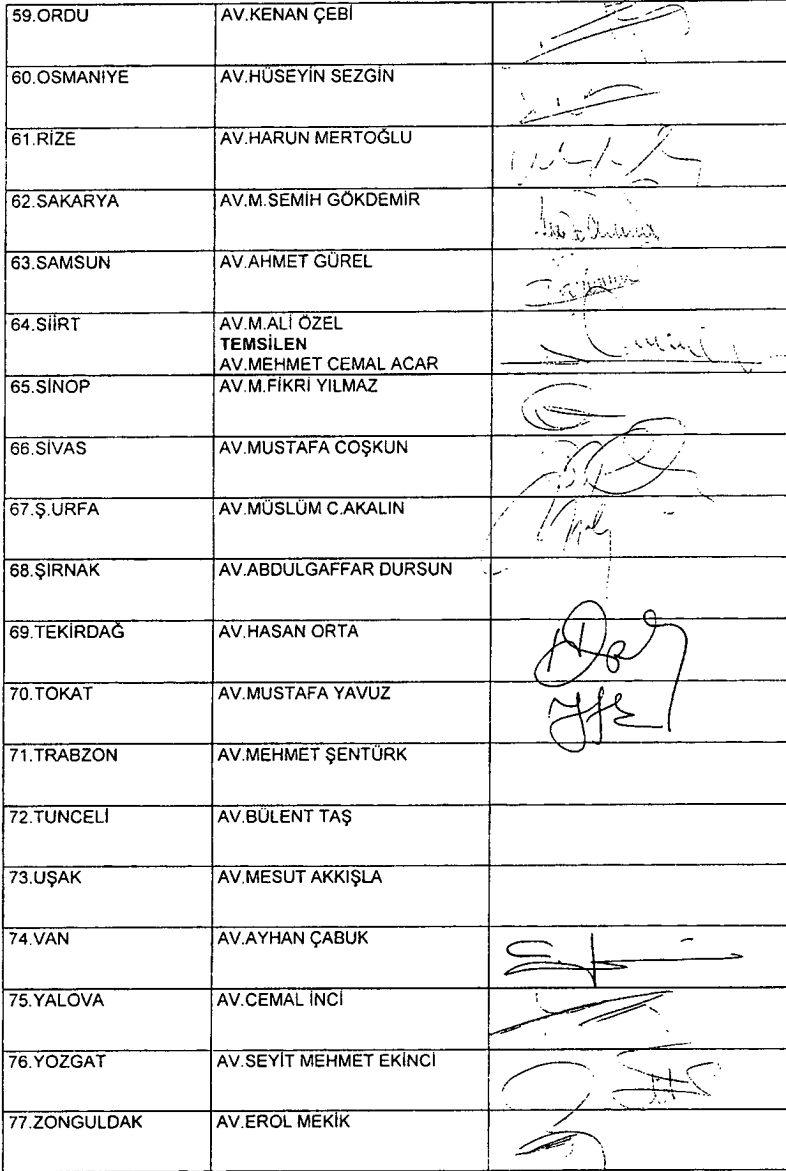 59.ORDU AV.KENAN ÇEBİ
60.OSMANİYE AV.HÜSEYİN SEZGİN
61.RİZE AV.HARUN MERTOĞLU
62.SAKARYA AV.M.SEMİH GÖKDEMİR
63.SAMSUN AV.AHMET GÜREL
64.SİİRT AV.M.ALİ ÖZEL
TEMSİLEN
AV.MEHMET CEMAL ACAR
65.SİNOP AV.M.FİKRİ YILMAZ
66.SİVAS AV.MUSTAFA COŞKUN
67.Ş.URFA AV.MÜSLÜM C.AKALIN
68.ŞIRNAK AV.ABDULGAFFAR DURSUN
69.TEKİRDAĞ AV.HASAN ORTA
70.TOKAT AV.MUSTAFA YAVUZ
71.TRABZON AV.MEHMET ŞENTÜRK
72.TUNCELİ AV.BÜLENT TAŞ
73.UŞAK AV.MESUT AKKIŞLA
74.VAN AV.AYHAN ÇABUK
75.YALOVA AV.CEMAL İNCİ
76.YOZGAT AV.SEYİT MEHMET EKİNCİ
77.ZONGULDAK AV.EROL MEKİK